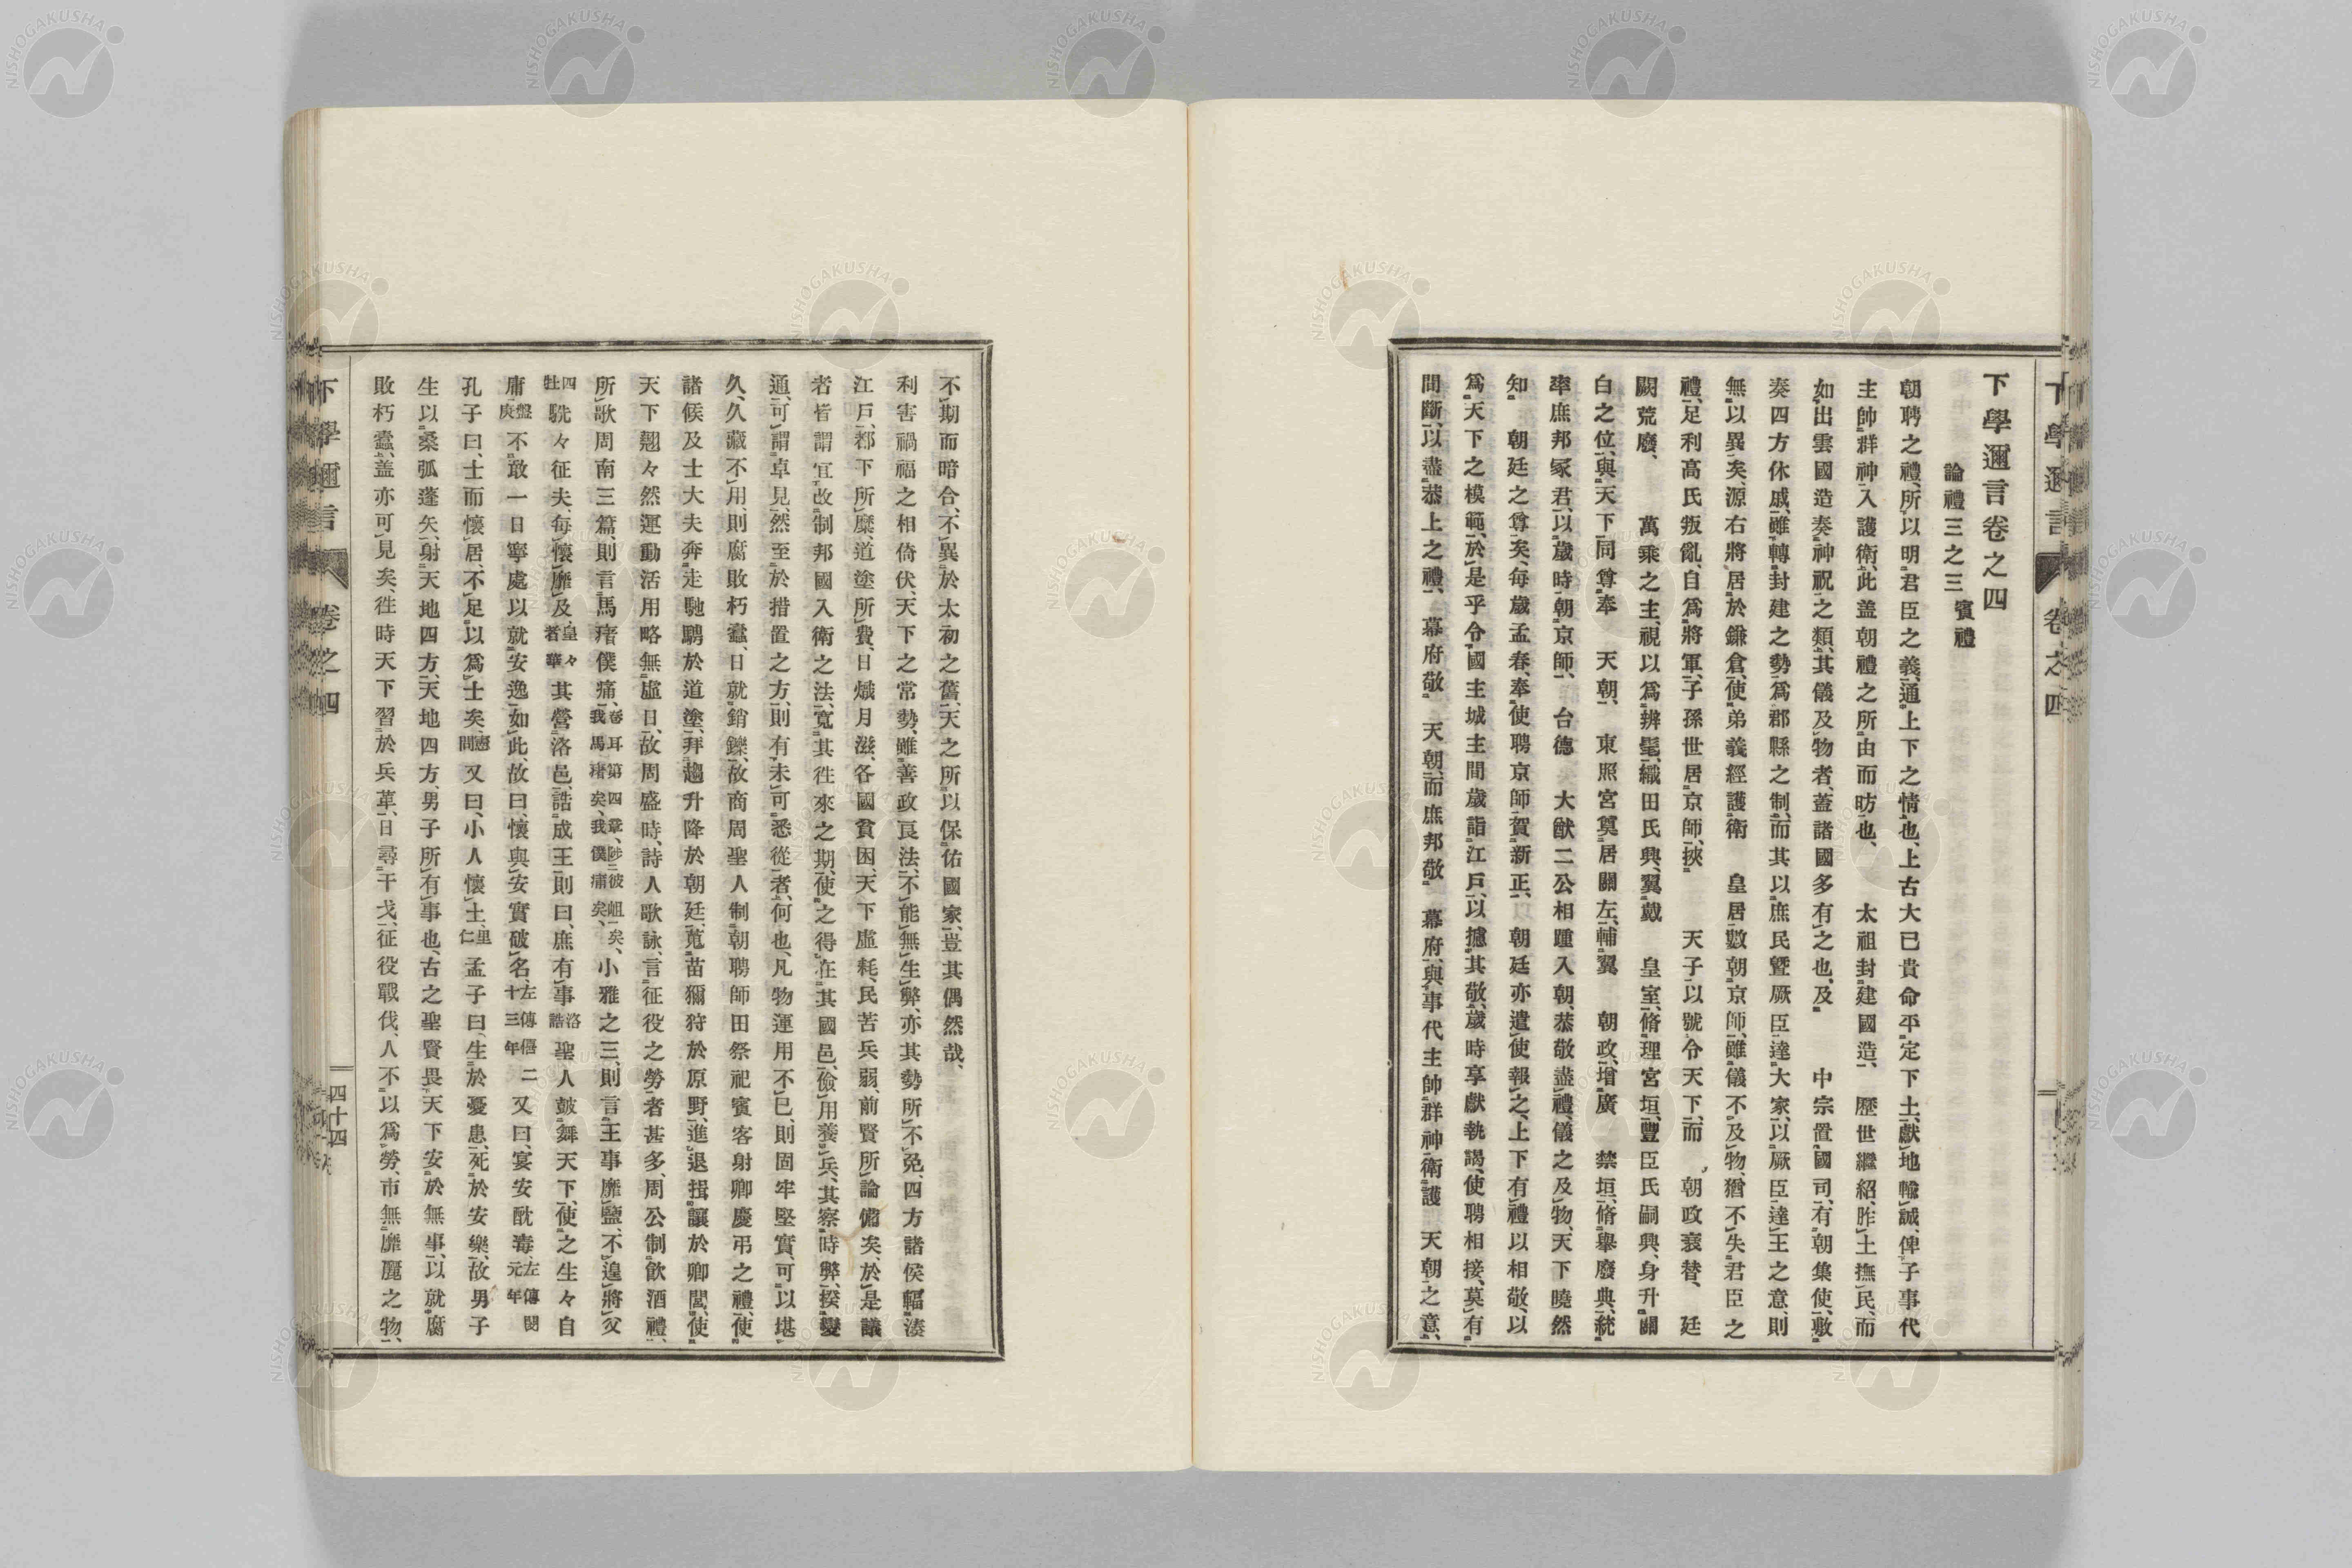 下學邇言卷之四
論禮三之三 賓禮
朝聘之禮、所以明君臣之義、通上下之情也、上古大已貴命平定下土、獻地輸誠、俾子事代
主帥群神入護衛、此盖朝禮之所由而昉也、 太祖封建國造、 歷世繼紹胙土撫民、而
如出雲國造奏神祝之類、其儀及物者、蓋諸國多有之也、及 中宗置國司、有朝集使、敷
奏四方休戚、雖轉封建之勢爲郡縣之制、而其以庶民曁厥臣達大家、以厥臣達王之意、則
無以異矣、源右將居於鎌倉、使弟義經護衛 皇居、數朝京師、雖儀不及物、猶不失君臣之
禮、足利高氏叛亂、自爲將軍、子孫世居京師、挾 天子以號令天下、而 朝政衰替、 廷
闕荒廢、 萬乘之主、視以爲辨髦、織田氏興、翼戴 皇室、脩理宮垣、豐臣氏嗣興、身升關
白之位、與天下同尊奉 天朝、 東照宮奠居關左、輔翼 朝政、增廣 禁垣、脩舉廢典、統
率庶邦冢君、以歲時朝京師、 台德 大猷二公相踵入朝、恭敬盡禮、儀之及物、天下曉然
知 朝廷之尊矣、每歲孟春、奉使聘京師、賀新正、 朝廷亦遣使報之、上下有禮以相敬、以
爲天下之模範、於是乎令國主城主間歲詣江戶、以攄其敬、歲時享獻執謁、使聘相接、莫有
間斷、以盡恭上之禮、 幕府敬 天朝、而庶邦敬 幕府、與事代主帥群神衛護 天朝之意、
下學邇言 卷之四
不期而暗合、不異於太初之舊、天之所以保佑國家、豈其偶然哉、
利害禍福之相倚伏、天下之常勢、雖善政良法、不能無生弊、亦其勢所不免、四方諸侯輻湊
江戶、都下所糜、道塗所費、日熾月滋、各國貧困、天下虛耗、民苦兵弱、前賢所論備矣、於是議
者皆謂宜改制邦國入衛之法、寬其往來之期、使之得在其國邑、儉用養兵、其察時弊、揆變
通、可謂卓見、然至於措置之方、則有未可悉從者、何也、凡物運用不已、則固牢堅實、可以堪
久、久藏不用、則腐敗朽蠹、日就銷鑠、故商周聖人制朝聘師田祭祀賓客射鄉慶弔之禮、使
諸候及士大夫奔走馳騁於道塗、拜趨升降於朝廷、蒐苗獮狩於原野、進退揖讓於鄉閭、使
天下翹々然運動活用略無虛日、故周盛時、詩人歌詠、言征役之勞者甚多、周公制飮酒禮、
所歌周南三篇、則言馬瘏僕痡、卷耳第四章、陟彼岨矣、我馬瘏矣、我僕痡矣、小雅之三、則言王事靡盬、不遑將父
四牡駪々征夫、每懷靡及、皇々者華其營洛邑、誥成王則曰、庶有事洛誥聖人皷舞天下、使之生々自
庸、盤庚不敢一日寧處以就安逸如此、故曰、懷與安實破名、左傳僖二十三年又曰、宴安酖毒、左傳閔元年
孔子曰、士而懷居、不足以爲士矣、憲問又曰、小人懷土、里仁孟子曰、生於憂患、死於安樂、故男子
生以桑弧蓬矢、射天地四方、天地四方、男子所有事也、古之聖賢畏天下安於無事、以就腐
敗朽蠹、盖亦可見矣、往時天下習於兵革、日尋干戈、征役戰伐、人不以爲勞、市無靡麗之物、
下學邇言 卷之四 四十四